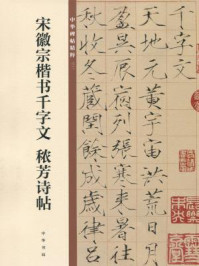 中华碑帖精粹
宋徽宗楷书千字文 秾芳诗帖
中华书局
千字文
天地元黃宇宙洪荒日月
盈昃辰宿列張寒來暑往
秋收冬藏閏餘成歲律呂